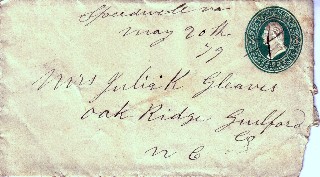 Speedwell va
May 20th
79
Mrs Julia K Gleaves
Oak Ridge Guilford
Co
N C